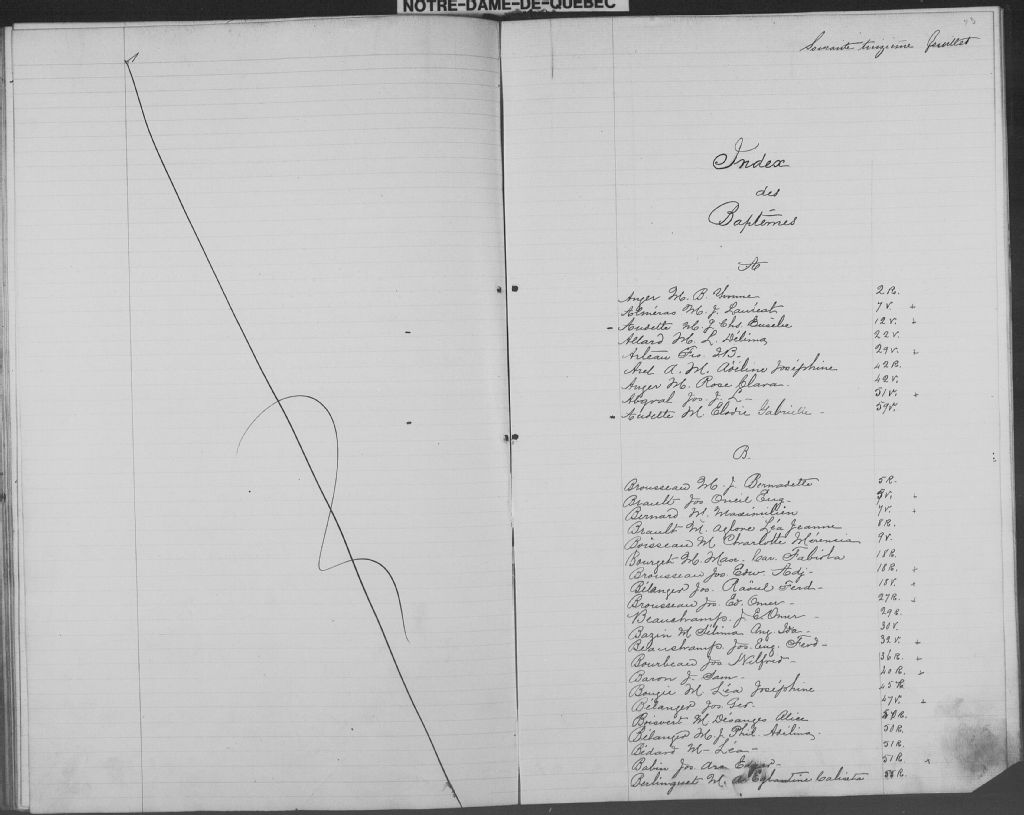 NOTRE-DAME-DE-QUÉBEC
73
Soixante treizième feuillet
Index
des
Baptêmes
A
Anger M. B. Yvonne 2 R.
Alméras M. J. Lauréat 7 V. +
Audette M. J. Chs. Eusèbe 12 V. +
Allard M. L. Délima 22 V.
Arteau Frs. J.B. 29 V. +
Arel A. M. Adéline Joséphine 42 R.
Anger M. Rose Clara 42 V.
Abgral Jos. J. L. 51 V. +
Audette M. Elodie Gabrielle 59 V.
B.
Brousseau M. J. Bernadette 5 R.
Brault Jos Oneil Eug. 5 V. +
Bernard M. Maximilien 7 V. +
Brault M. Aglore Léa Jeanne 8 R.
Boisseau M Charlotte Mérencia 9 V.
Bourget M. Max. Car. Fabiola 18 R.
Brousseau Jos Edw. Adj. 18 R. +
Bélanger Jos. Raoul Ferd. 18 V. +
Brousseau Jos. Ed. Omer 27 R. +
Beauchamps J. E. Omer 29 R.
Bazin M Célina Ang. Ida 30 V.
Beauchamps Jos. Eug. Ferd 32 V. +
Bourbeau Jos Wilfred 36 R. +
Baron J. Sam 40 R. +
Bougie M Léa Joséphine 45 R.
Bélanger Jos. Geo. 47 V. +
Boisvert M Désanges Alice 50 R.
Bélanger M. J. Phil. Adélina 50 R.
Bédard M Léa 51 R.
Babin Jos. Edgar 51 R. +
Berlinguet M. A Eglantine Calixta 55 R.